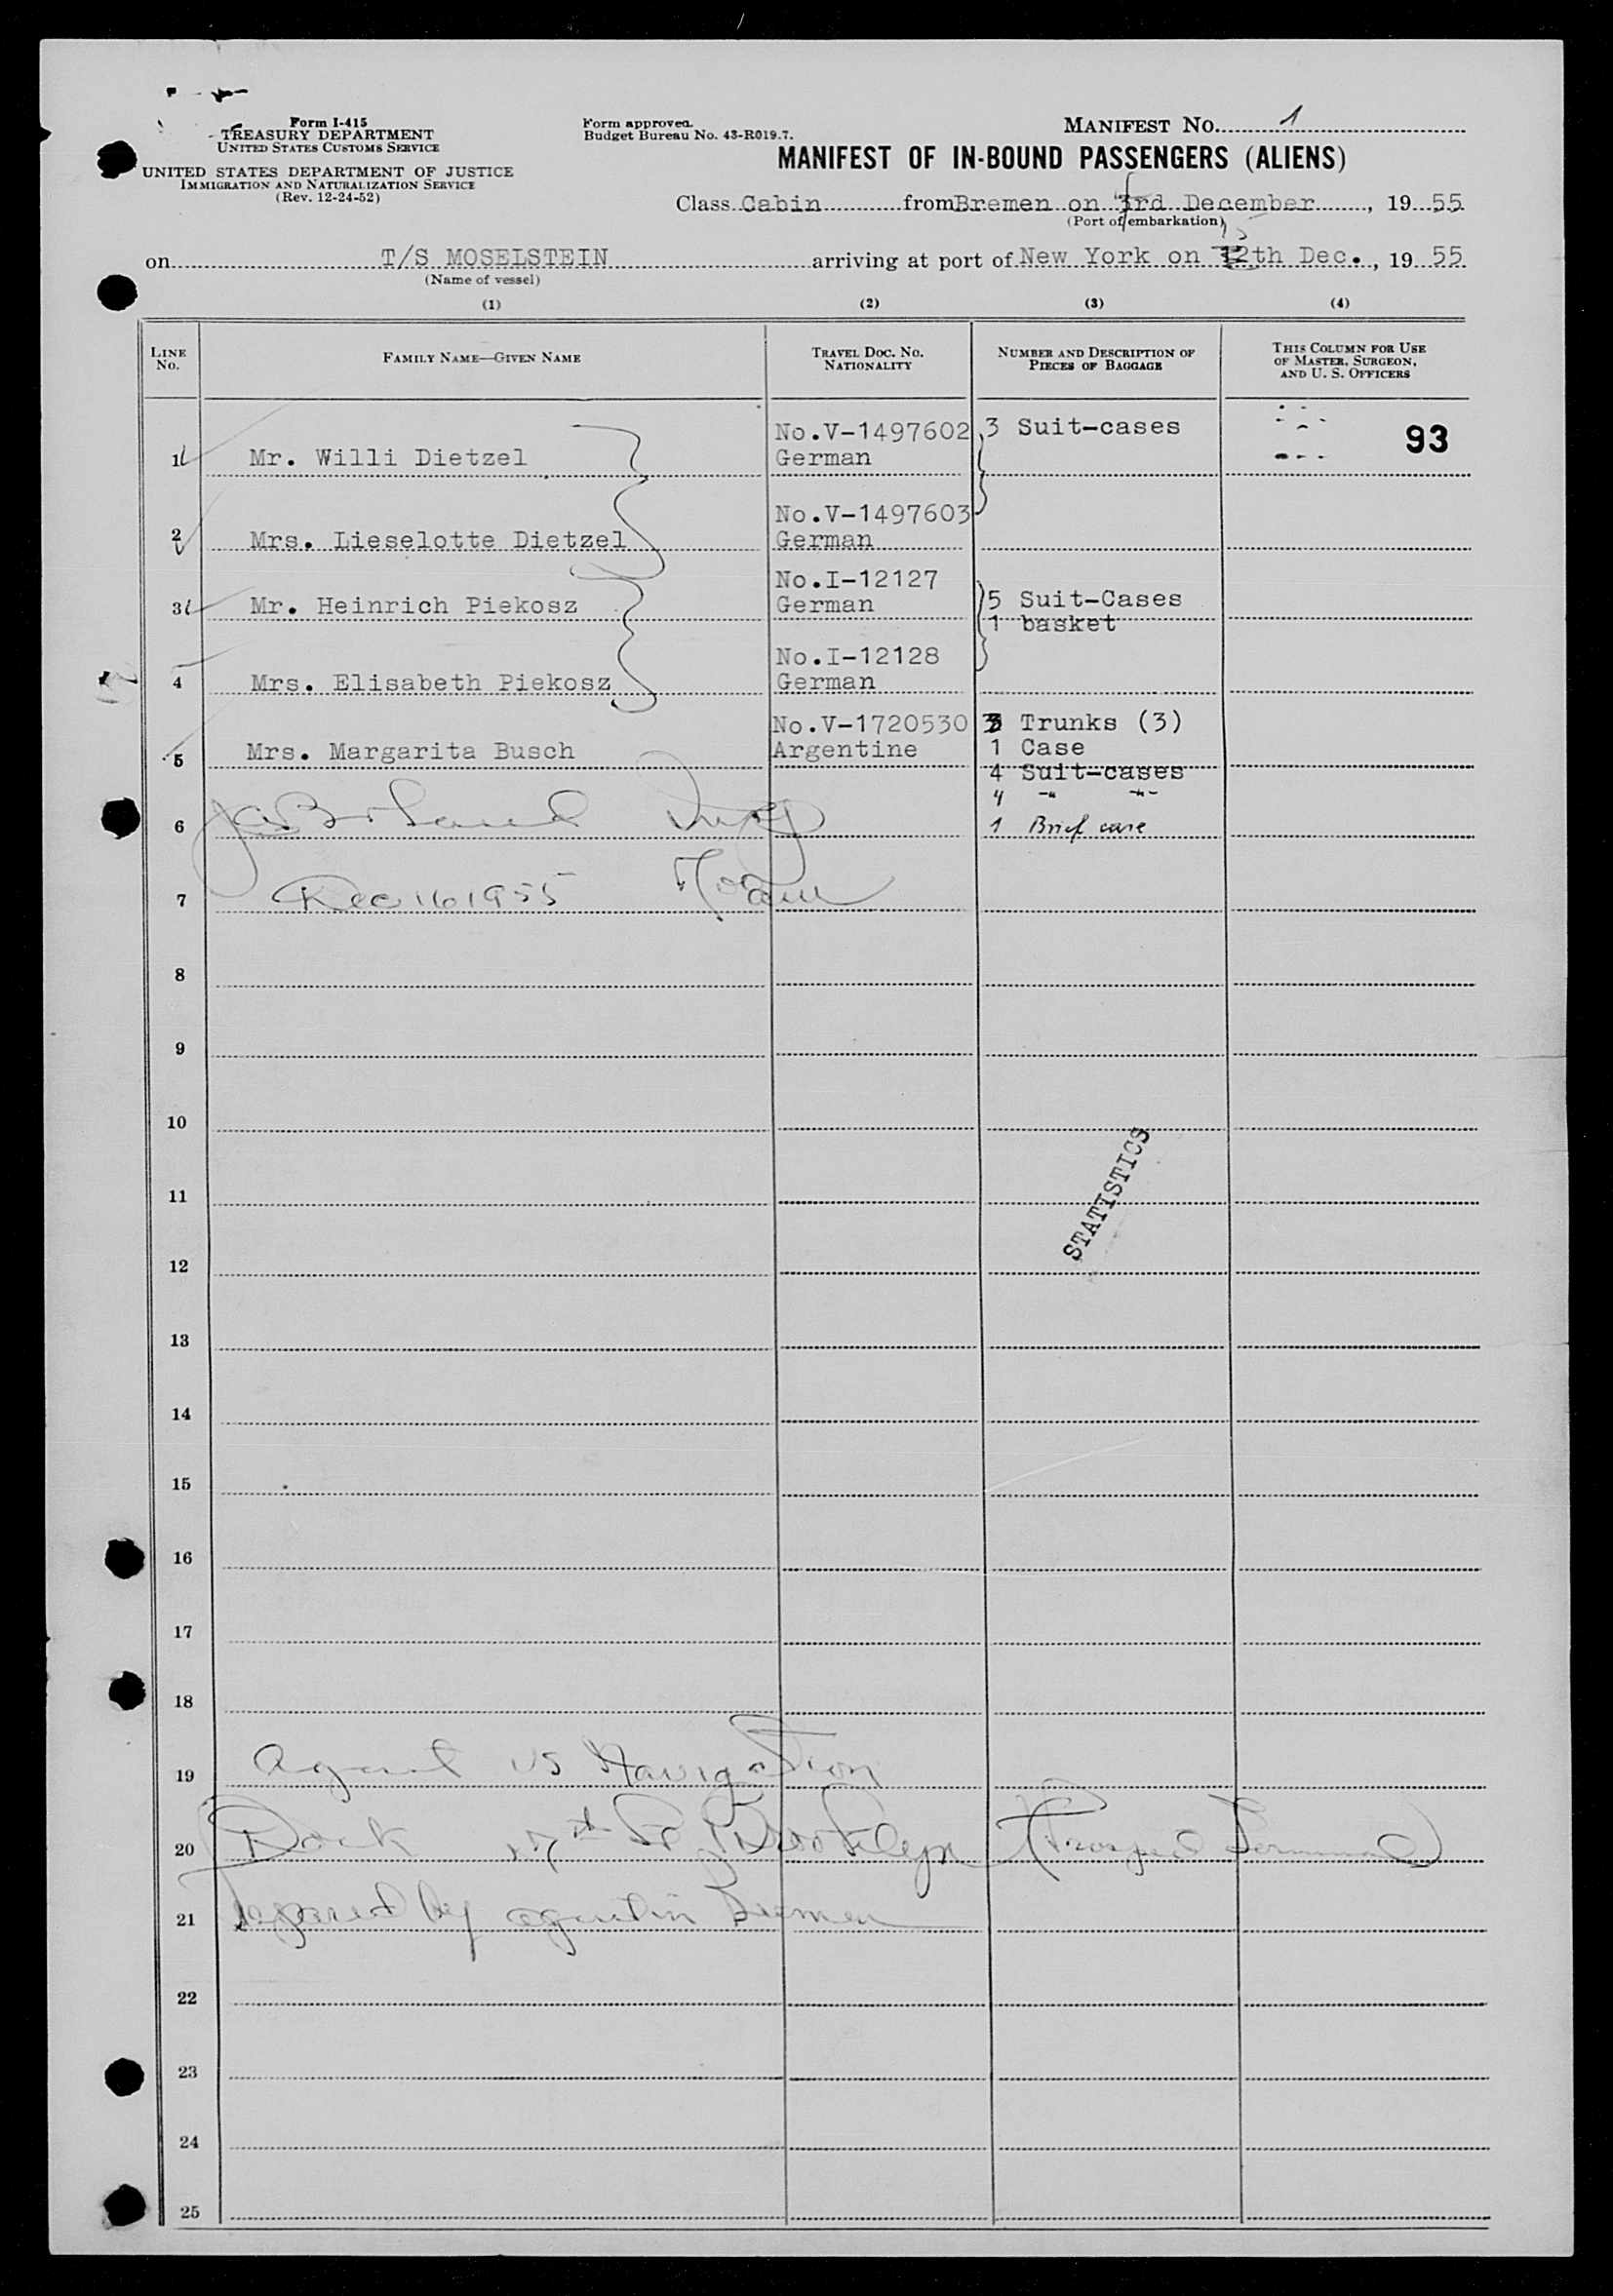 Form I-415
TREASURY DEPARTMENT
UNITED STATES CUSTOMS SERVICE
UNITED STATES DEPARTMENT OF JUSTICE
IMMIGRATION AND NATURALIZATION SERVICE
(Rev. 12-24-52)
Form approved.
Budget Bureau No. 43-R019.7.
MANIFEST NO. 1
MANIFEST OF IN-BOUND PASSENGERS (ALIENS)
Class Cabin from Bremen on 3rd December, 19 55
(Port of embarkation)
on T/S MOSELSTEIN arriving at port of New York on 12th Dec., 19 55
(Name of vessel)
(1) (2) (3) (4)
LINE NO. FAMILY NAME—GIVEN NAME TRAVEL DOC. NO. NATIONALITY NUMBER AND DESCRIPTION OF PIECES OF BAGGAGE THIS COLUMN FOR USE OF MASTER, SURGEON, AND U. S. OFFICERS
No.V-1497602 3 Suit-cases 93
1 Mr. Willi Dietzel German
No.V-1497603
2 Mrs. Lieselotte Dietzel German
No.I-12127
3 Mr. Heinrich Piekosz German 5 Suit-Cases
1 basket
No.I-12128
4 Mrs. Elisabeth Piekosz German
No.V-1720530 3 Trunks (3)
5 Mrs. Margarita Busch Argentine 1 Case
4 Suit-cases
4 -" -"-
6 1 Brief case
7 Dec 16 1955
8
9
10
STATISTICS
11
12
13
14
15
16
17
18
19 Agent US Navigation
20 Dock 17th St Brooklyn Terminal)
21 prepared by agent in Bremen
22
23
24
25